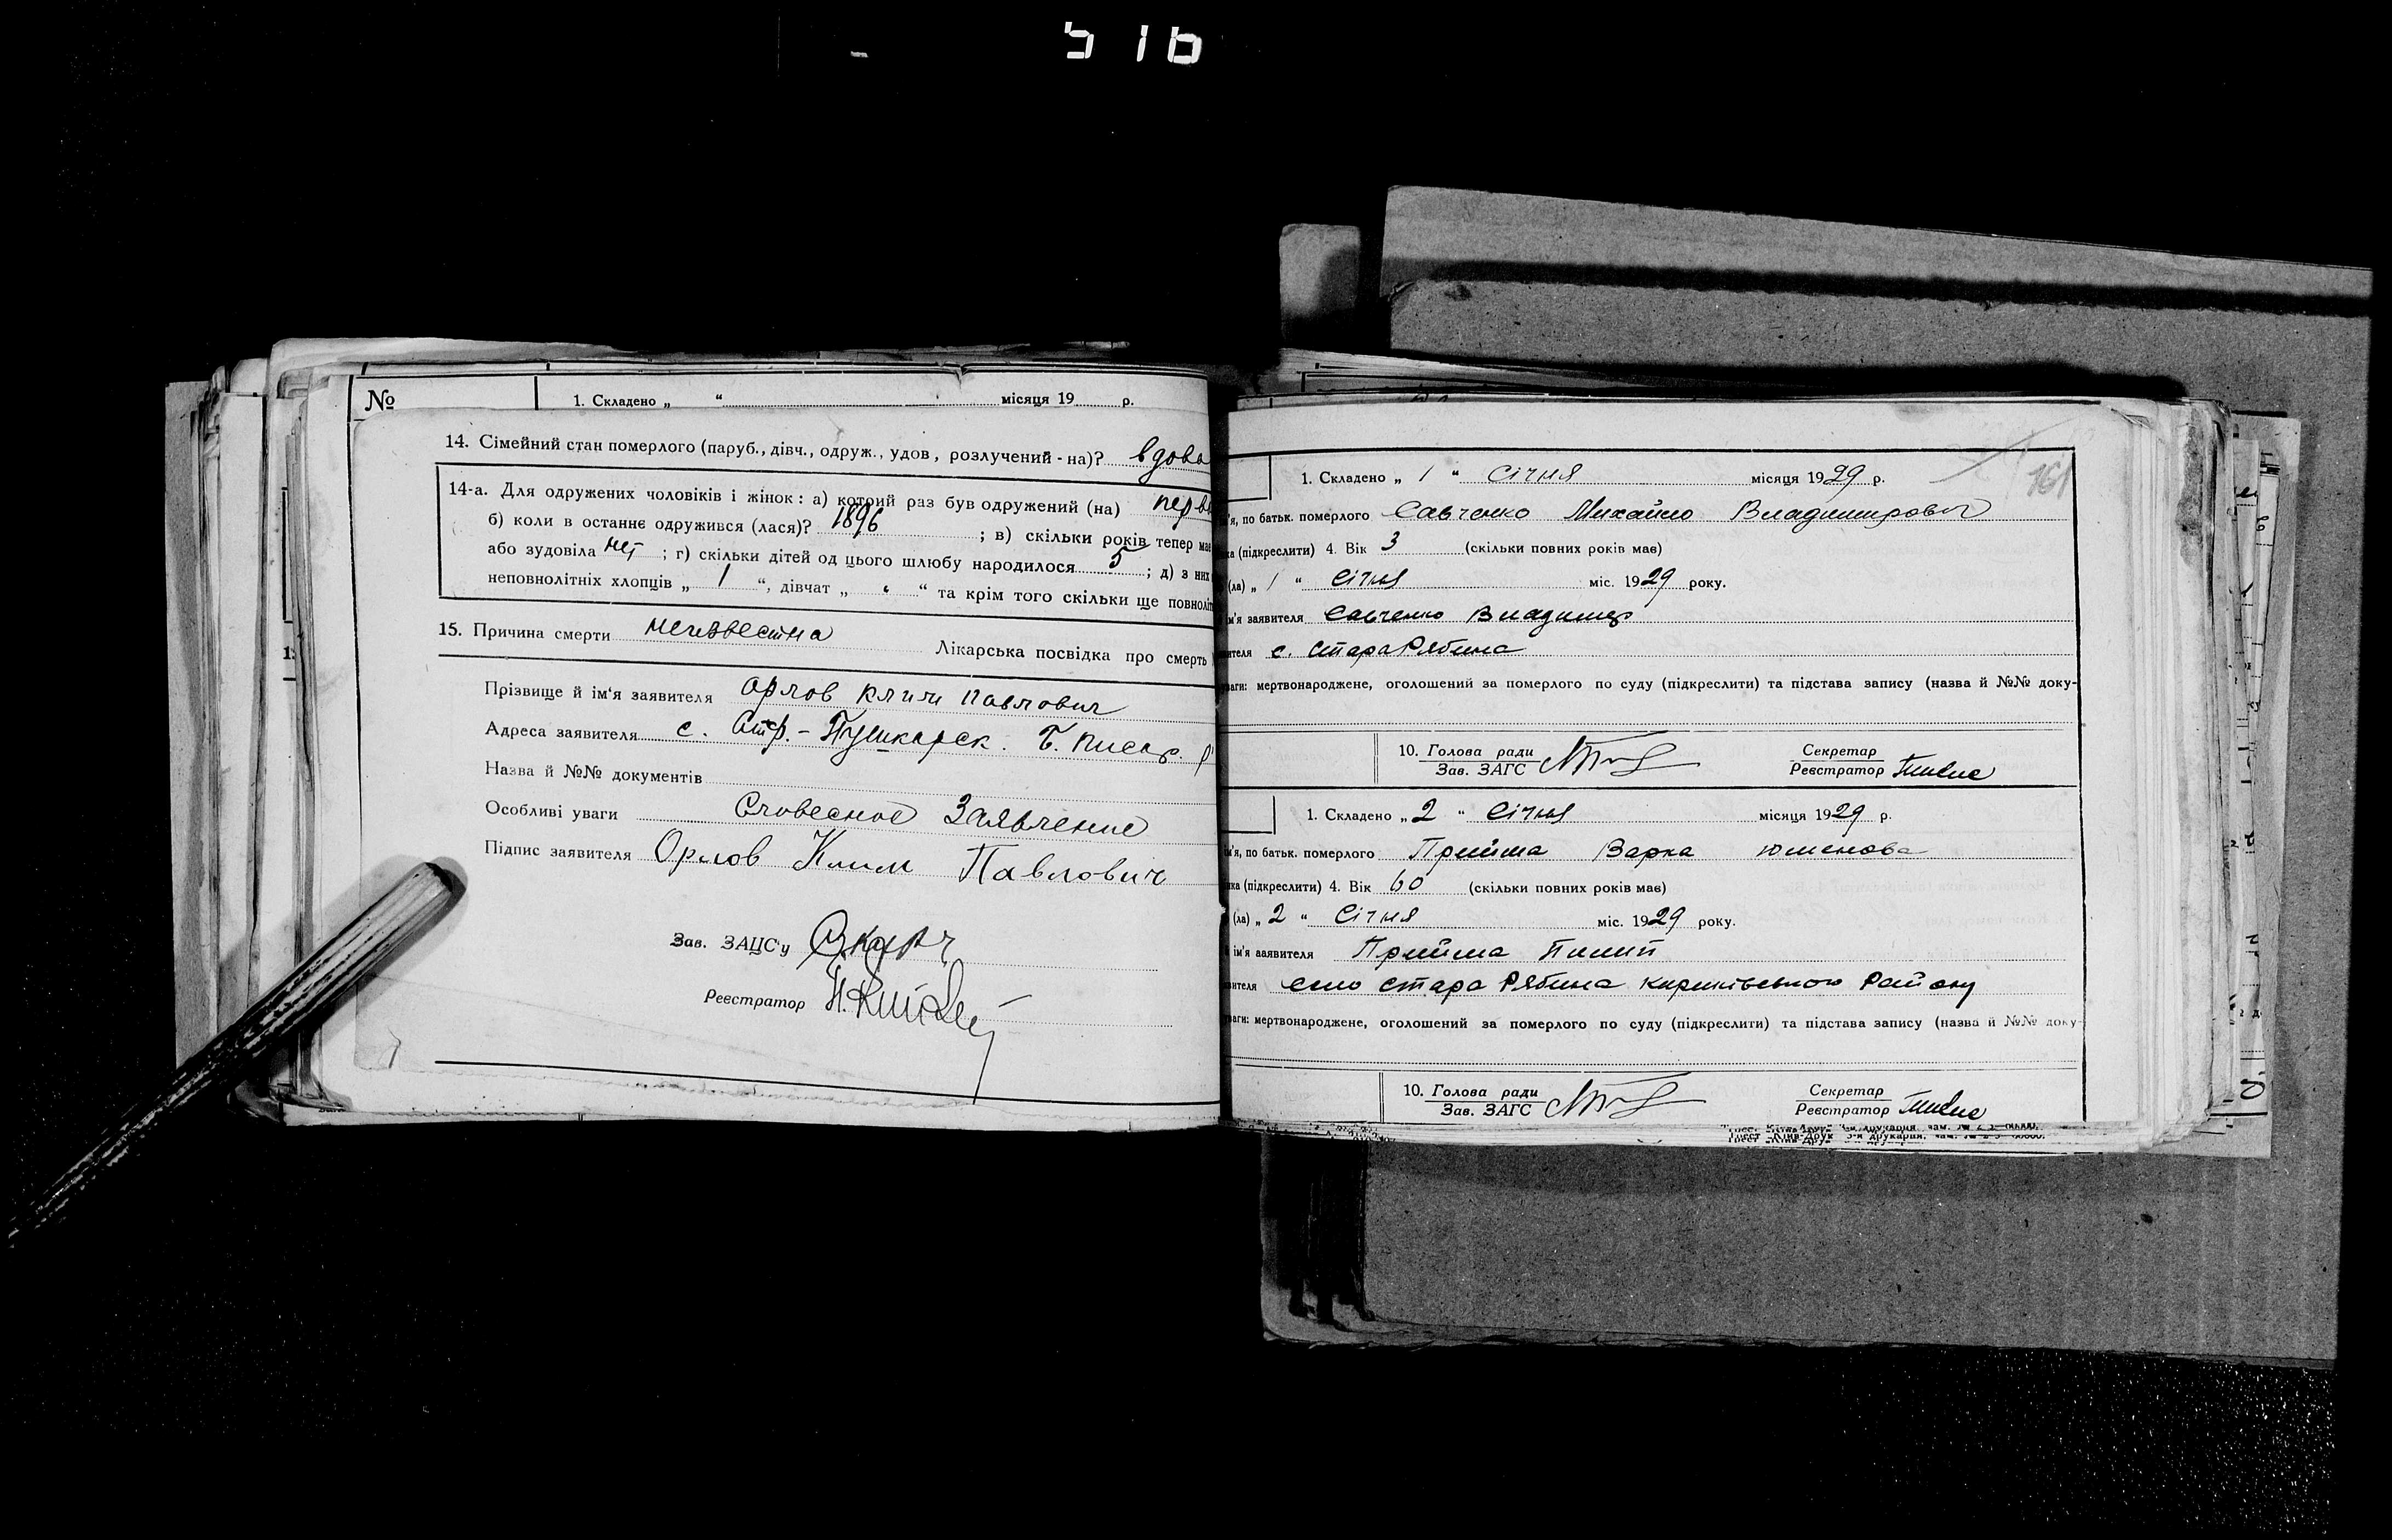 516
№ 1. Складено „ “ місяця 19 р.
14. Сімейний стан померлого (паруб., дівч., одруж., удов, розлучений - на)? вдова
14-а. Для одружених чоловіків і жінок: а) котрий раз був одружений (на) перв
б) коли в останнє одружився (лася)? 1896 ; в) скільки років тепер має
або зудовіла нет ; г) скільки дітей од цього шлюбу народилося 5 ; д) з них
неповнолітніх хлопців „ 1 “, дівчат „ “ та крім того скільки ще повноліт
15. Причина смерти неизвестна Лікарська посвідка про смерть
Прізвище й ім'я заявителя Орлов Клим Павлович
Адреса заявителя с. Стр.-Пушкарск. Б. Писар. р
Назва й №№ документів
Особливі уваги Словесное Заявление
Підпис заявителя Орлов Клим Павлович
Зав. ЗАЦС'у
Реєстратор
161
1. Складено „ 1 “ Січня місяця 1929 р.
'я, по батьк. померлого Савченко Михайло Владимирович
ка (підкреслити) 4. Вік 3 (скільки повних років має)
(ла) „ 1 “ Січня міс. 1929 року.
м'я заявителя Савченко Владимир
ителя с. Стара Рябина
ваги: мертвонароджене, оголошений за померлого по суду (підкреслити) та підстава запису (назва й №№ доку-
10. Голова ради Секретар
Зав. ЗАГС Реєстратор
1. Складено „ 2 “ Січня місяця 1929 р.
м'я, по батьк. померлого Прийма Варка Юменова
нка (підкреслити) 4. Вік 60 (скільки повних років має)
(ла) „ 2 “ Січня міс. 1929 року.
й ім'я заявителя Прийма Пилип
вителя село Стара Рябина Кириківського Району
ваги: мертвонароджене, оголошений за померлого по суду (підкреслити) та підстава запису (назва й №№ доку-
10. Голова ради Секретар
Зав. ЗАГС Реєстратор